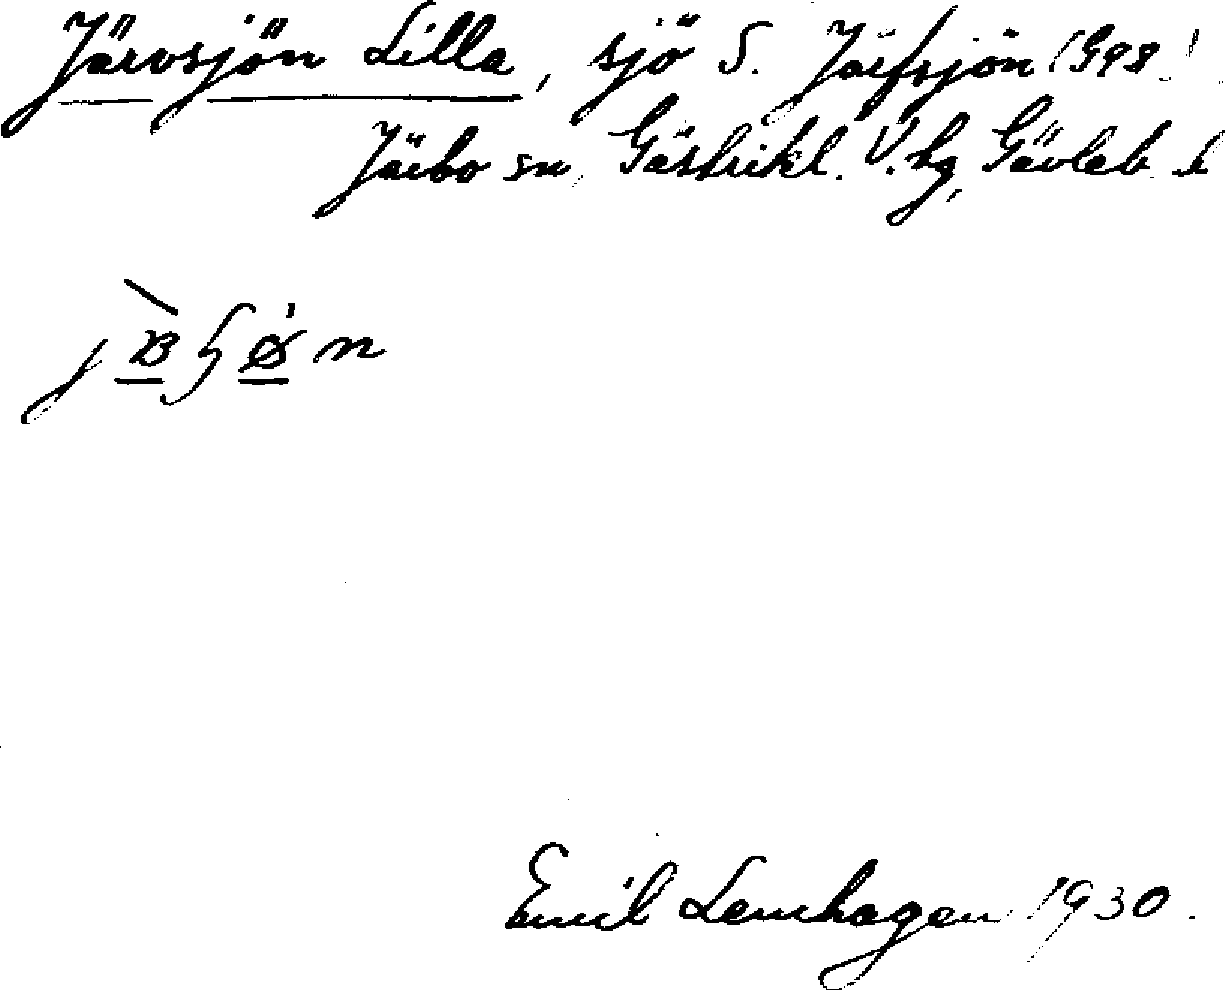 Järvsjön Lilla, sjö S. Järfsjön (G98!
Järbo sn, Gästrikl. V. hg, Gävleb. l
Emil Lemhagen 1930.